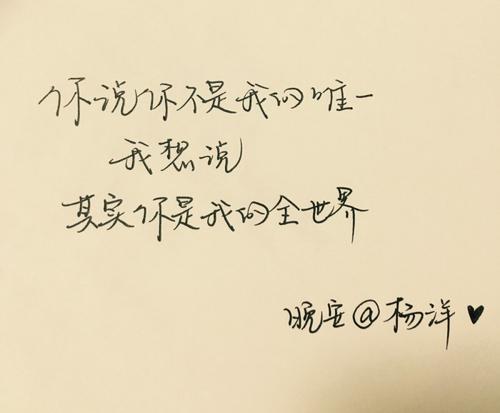 你说你不是我的唯一
我想说
其实你是我的全世界
晚安@杨洋♥